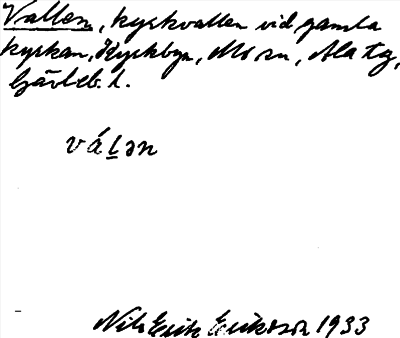 Vallen, kyrkvallen vid gamla
kyrkan, Kyrkbyn, Mo sn, Ala tg,
Gävleb. l.
válən
Nils Erik Eriksson 1933